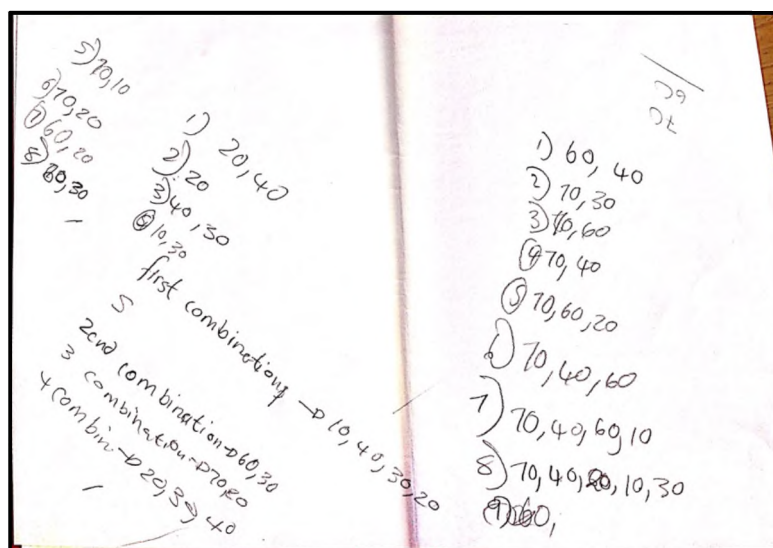 5) 70,10
6) 70,20
7) 60,20
8) 80,30
1) 20,40
2) 20
3) 40,30
10,30
first combinations → 10,40,30,20
5
2end combination → 60,30
3 combination → 70,20
4 combin → 20,30,40
1) 60, 40
2) 70,30
3) 70,60
4) 70,40
5) 70,60,20
6) 70,40,60
7) 70,40,60,10
8) 70,40,20,10,30
60,